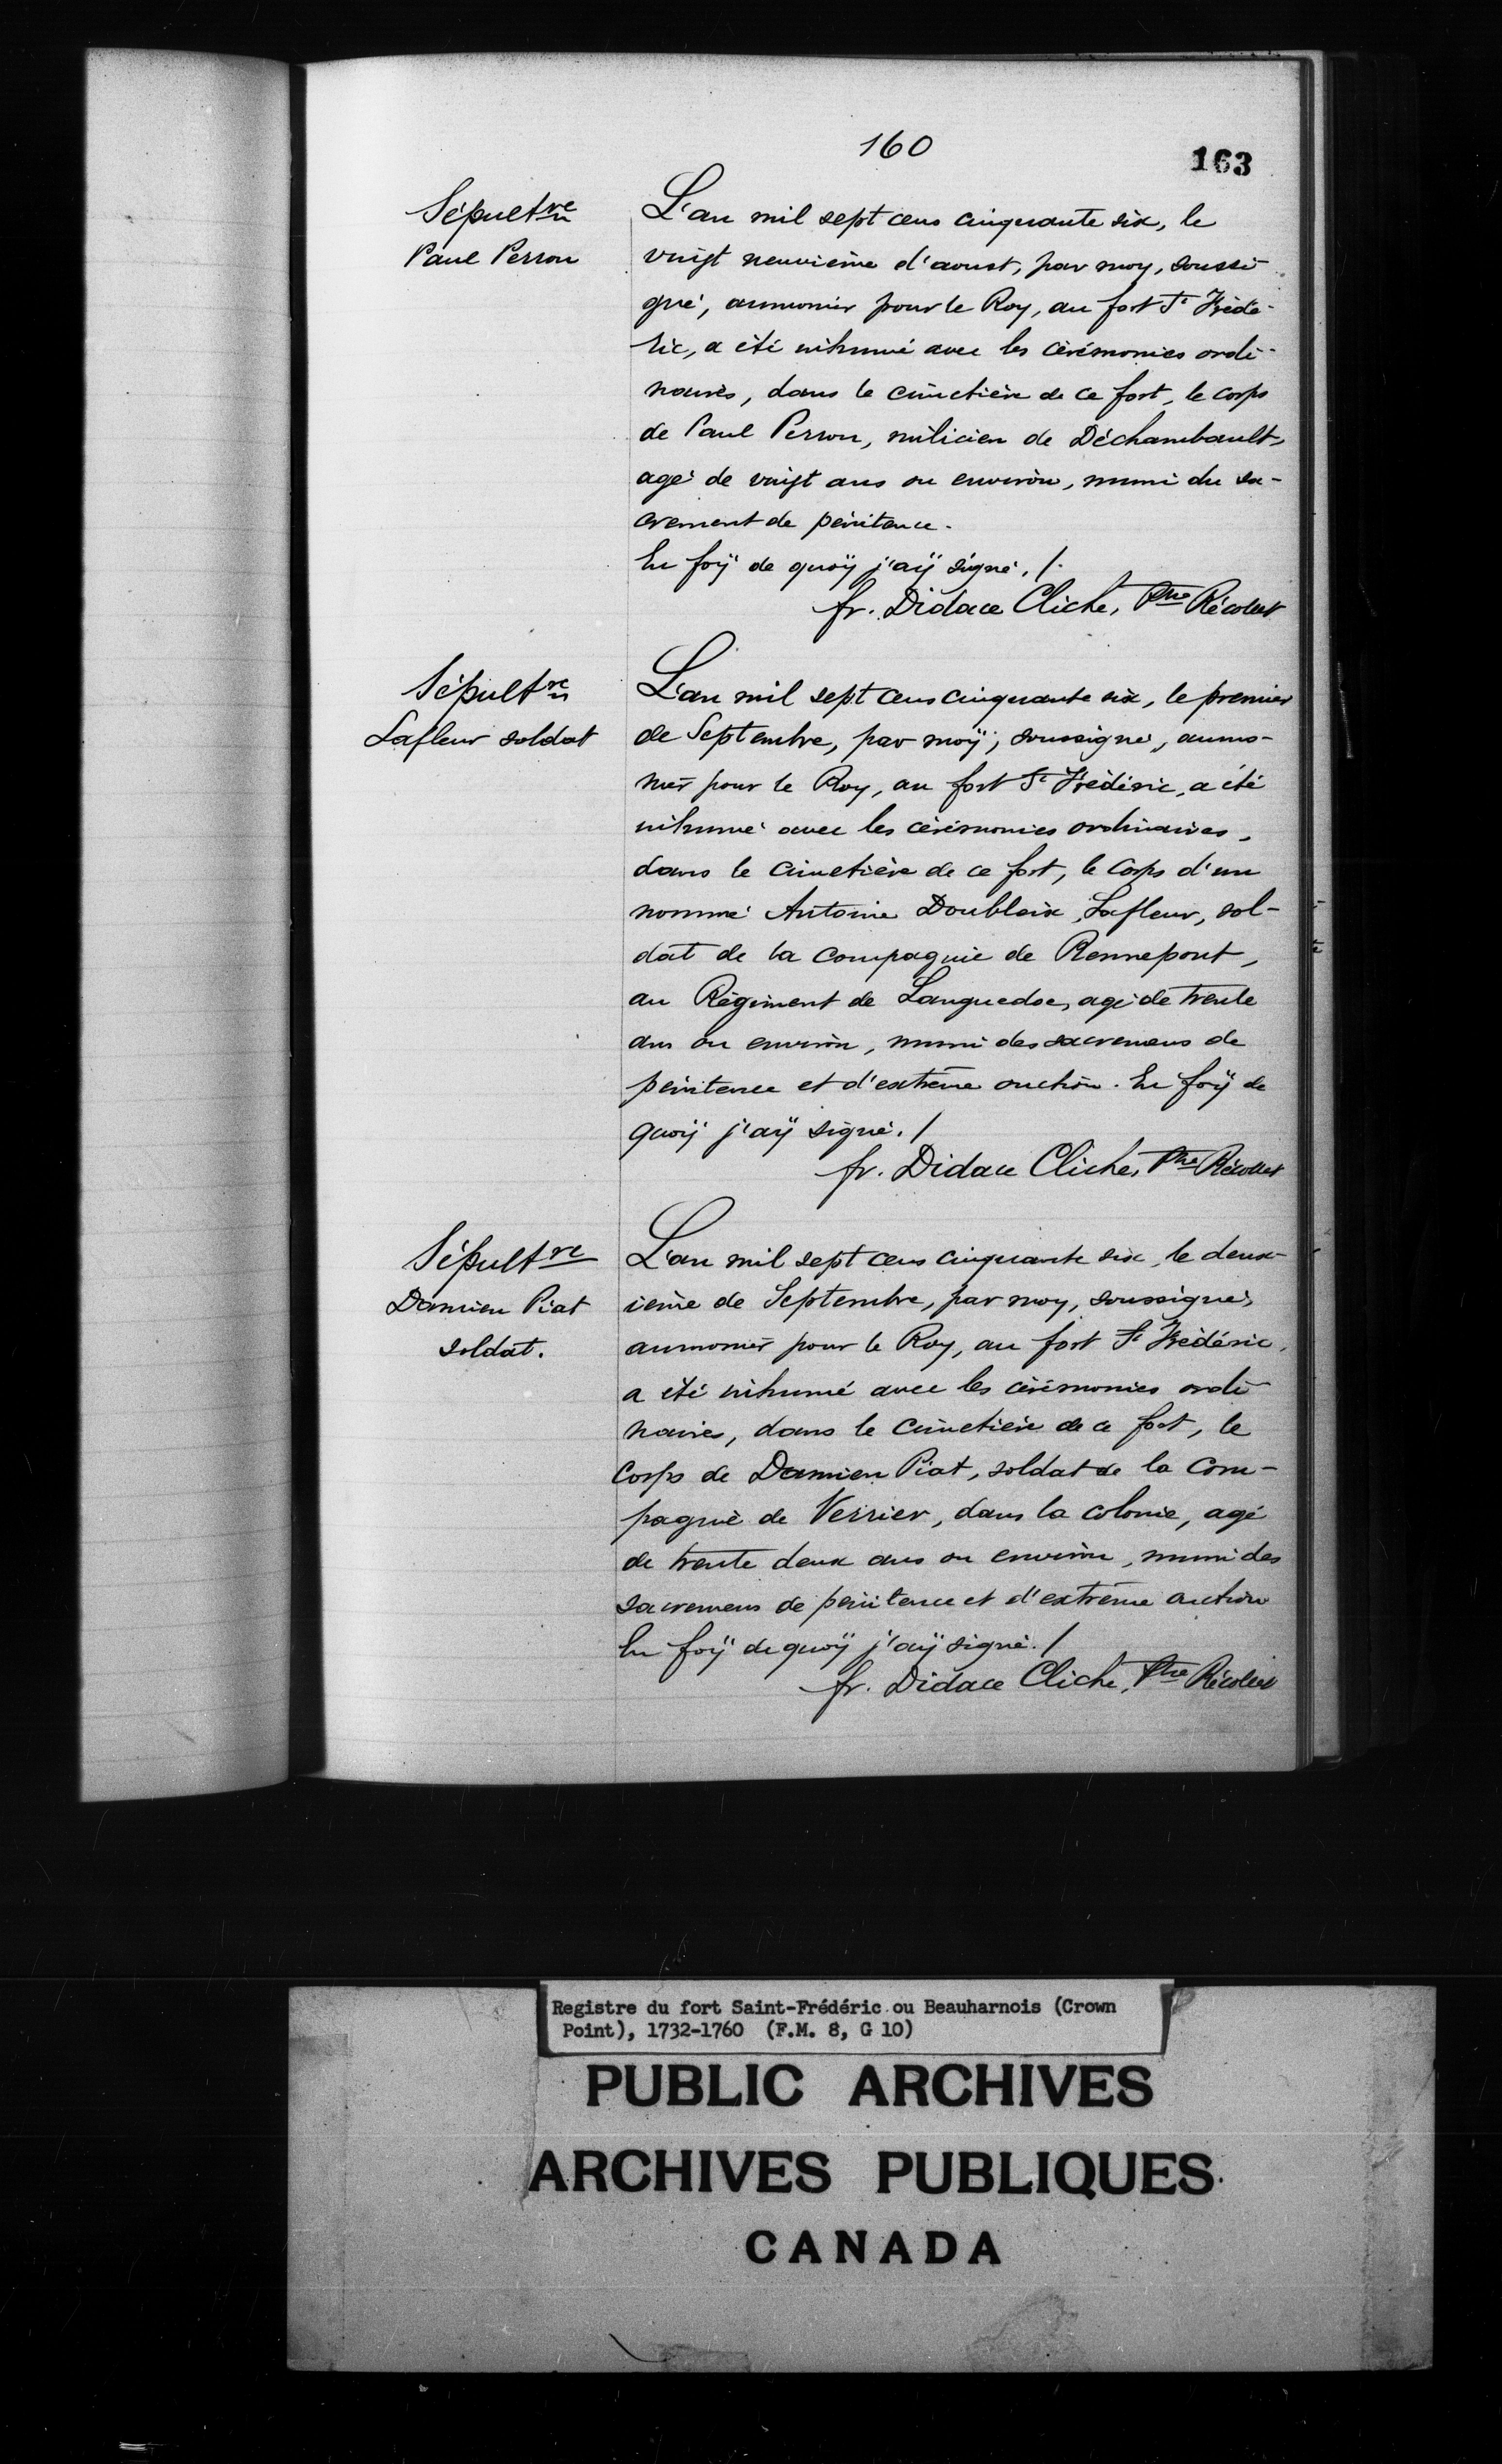 160
163
Sépultre
Paul Perron
L'an mil sept cens cinquante six, le
vingt neuvième d'aoust, par moy, soussi-
gné, aumonier pour le Roy, au fort St Frédé-
ric, a été inhumé avec les cérémonies ordi-
naires, dans le cimetière de ce fort, le corps
de Paul Perron, milicien de Déchambault,
agé de vingt ans ou environ, muni du sa-
crement de pénitence.
En foÿ de quoÿ j'aÿ signé. /.
fr. Didace Cliche, Ptre Récolet
Sépultre
Lafleur soldat
L'an mil sept cens cinquante six, le premier
de Septembre, par moÿ, soussigné, aumo-
nier pour le Roy, au fort St Frédéric, a été
inhumé avec les cérémonies ordinaires,
dans le cimetière de ce fort, le corps d'un
nommé Antoine Doublaix, Lafleur, sol-
dat de la compagnie de Rennepont,
au Régiment de Languedoc, agé de trente
ans ou environ, muni des sacremens de
pénitence et d'extrême onction. En foÿ de
quoÿ j'aÿ signé. /
fr. Didace Cliche, Ptre Récollet
Sépultre
Damien Piat
soldat.
L'an mil sept cens cinquante six, le deux-
ième de Septembre, par moy, soussigné,
aumonier pour le Roy, au fort St Frédéric,
a été inhumé avec les cérémonies ordi-
naires, dans le cimetière de ce fort, le
corps de Damien Piat, soldat de la Com-
pagnie de Verrier, dans la colonie, agé
de trente deux ans ou environ, muni des
sacremens de pénitence et d'extrême onction
En foÿ de quoÿ j'aÿ signé. /
fr. Didace Cliche, Ptre Récolet
Registre du fort Saint-Frédéric ou Beauharnois (Crown
Point), 1732-1760 (F.M. 8, G 10)
PUBLIC ARCHIVES
ARCHIVES PUBLIQUES
CANADA